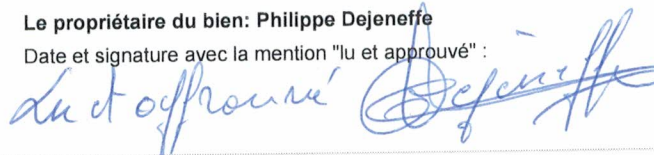 Le propriétaire du bien: Philippe Dejeneffe
Date et signature avec la mention "lu et approuvé" :
Lu et approuvé Dejeneffe